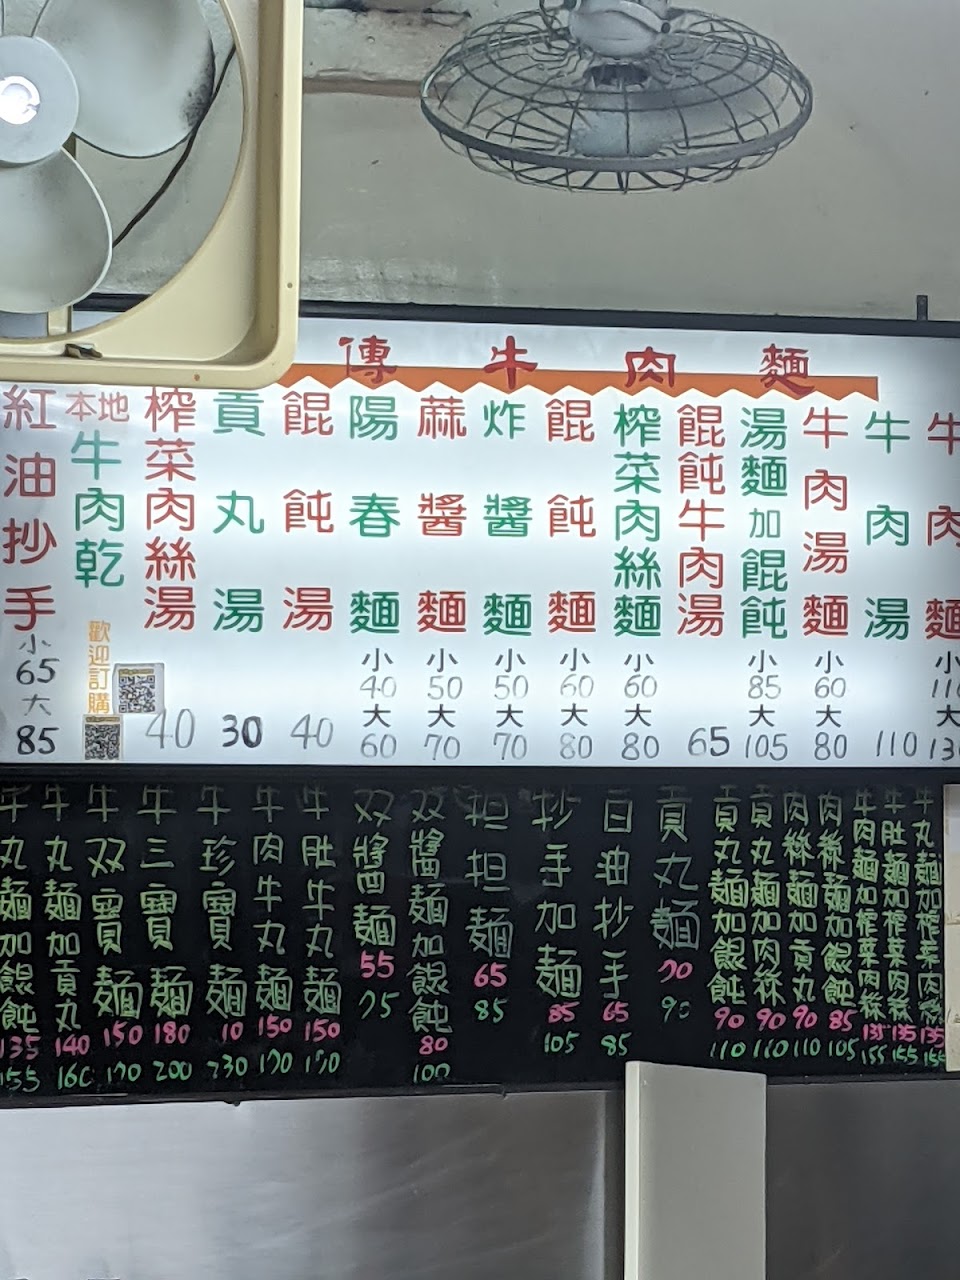 傳牛肉麵
牛肉麵 小110 大130
牛肉湯 110
牛肉湯麵 小60 大80
湯麵加餛飩 小85 大105
餛飩牛肉湯 65
榨菜肉絲麵 小60 大80
餛飩麵 小60 大80
炸醬麵 小50 大70
蔴醬麵 小50 大70
陽春麵 小40 大60
餛飩湯 40
貢丸湯 30
榨菜肉絲湯 40
本地牛肉乾 歡迎訂購
紅油抄手 小65 大85
牛丸麵加榨菜肉絲 135 155
牛肚麵加榨菜肉絲 135 155
牛肉麵加榨菜肉絲 135 155
肉絲麵加餛飩 85 105
肉絲麵加貢丸 90 110
貢丸麵加肉絲 90 110
貢丸麵加餛飩 90 110
貢丸麵 70 90
白油抄手 65 85
抄手加麵 85 105
担担麵 65 85
双醬麵加餛飩 80 100
双醬麵 55 75
牛肚牛丸麵 150 170
牛肉牛丸麵 150 170
牛珍寶麵
牛三寶麵 180 200
牛双寶麵 150 170
牛丸麵加貢丸 140 160
牛丸麵加餛飩 135 155